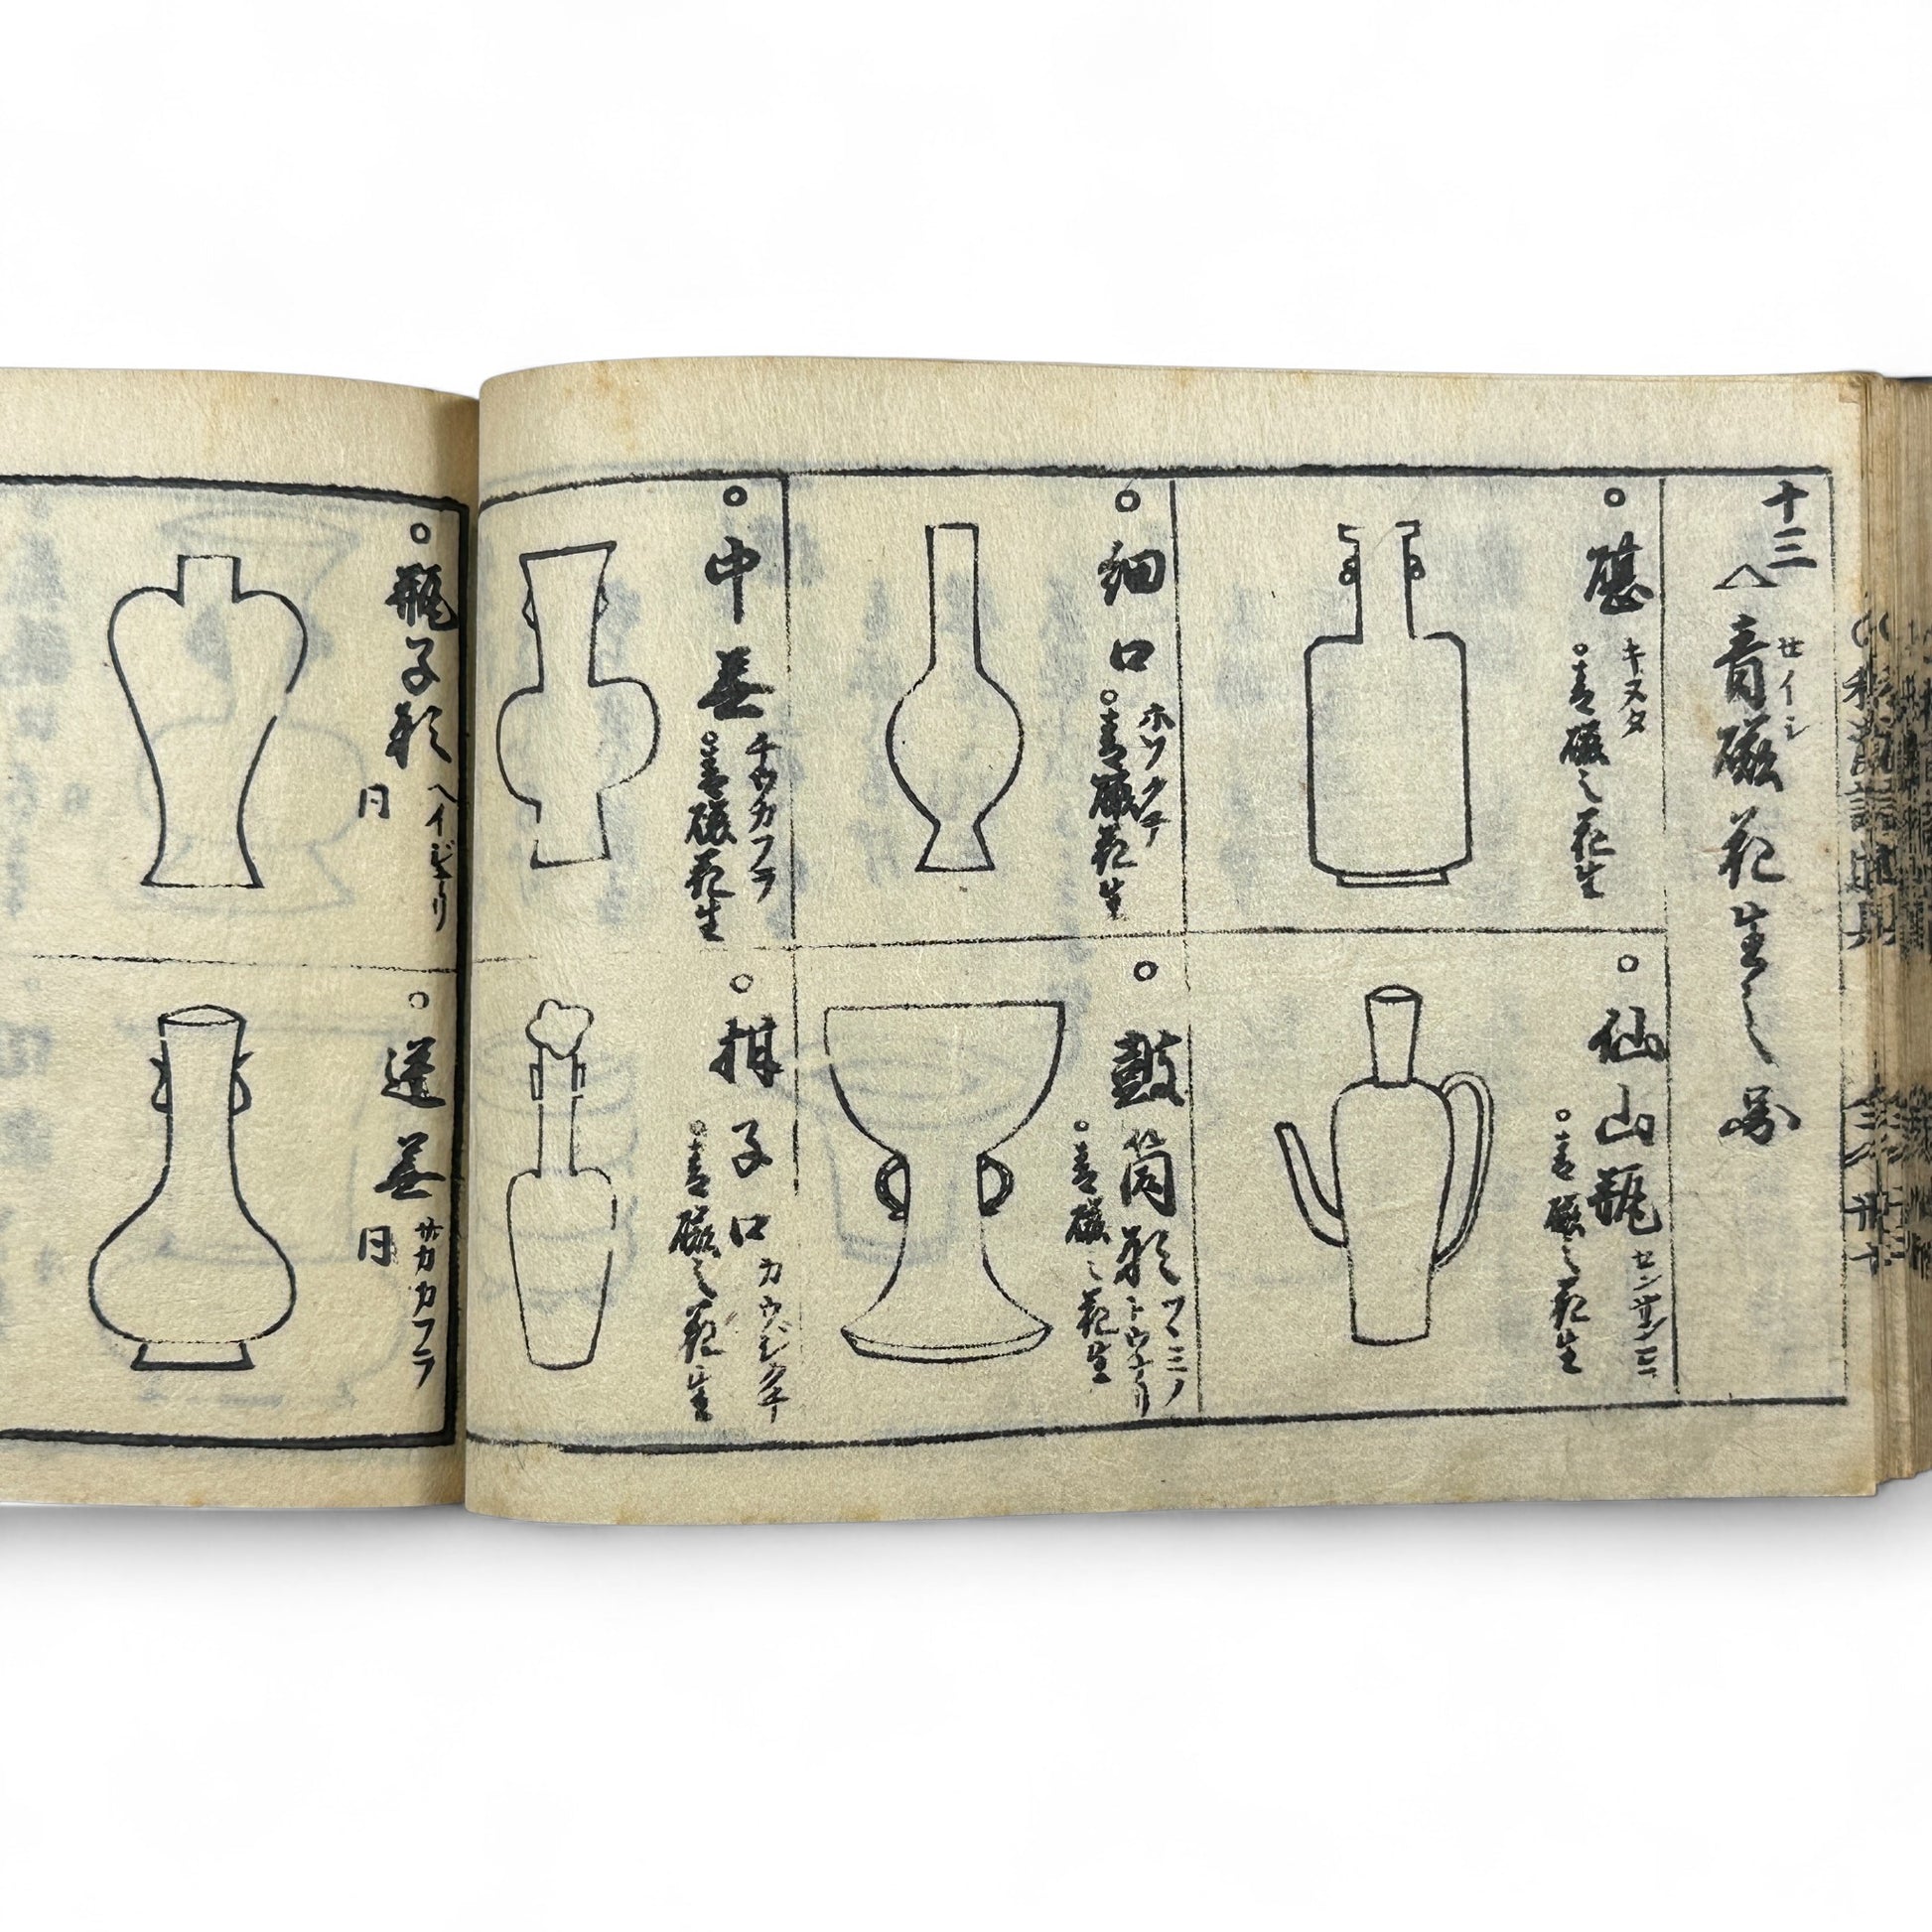 十三
青磁花生之部
セイジ
碪
キヌタ
青磁之花生
仙山瓶
センサンヒン
青磁之花生
細口
ホソクチ
青磁花生
鼓筒形
ツヽミノ
トウナリ
青磁之花生
中蕪
チウカフラ
青磁花生
柑子口
カウジクチ
青磁之花生
瓶子形
ヘイジナリ
同
逆蕪
サカカフラ
同